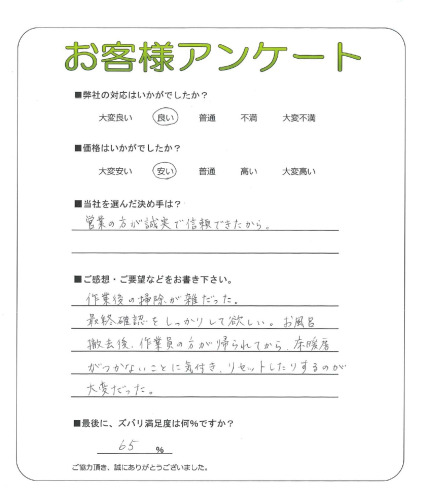 お客様アンケート
■弊社の対応はいかがでしたか?
大変良い 良い 普通 不満 大変不満
■価格はいかがでしたか?
大変安い 安い 普通 高い 大変高い
■当社を選んだ決め手は?
営業の方が誠実で信頼できたから。
■ご感想・ご要望などをお書き下さい。
作業後の掃除が雑だった。
最終確認をしっかりして欲しい。お風呂
撤去後、作業員の方が帰られてから、床暖房
がつかないことに気付き、リセットしたりするのが
大変だった。
■最後に、ズバリ満足度は何%ですか?
65 %
ご協力頂き、誠にありがとうございました。